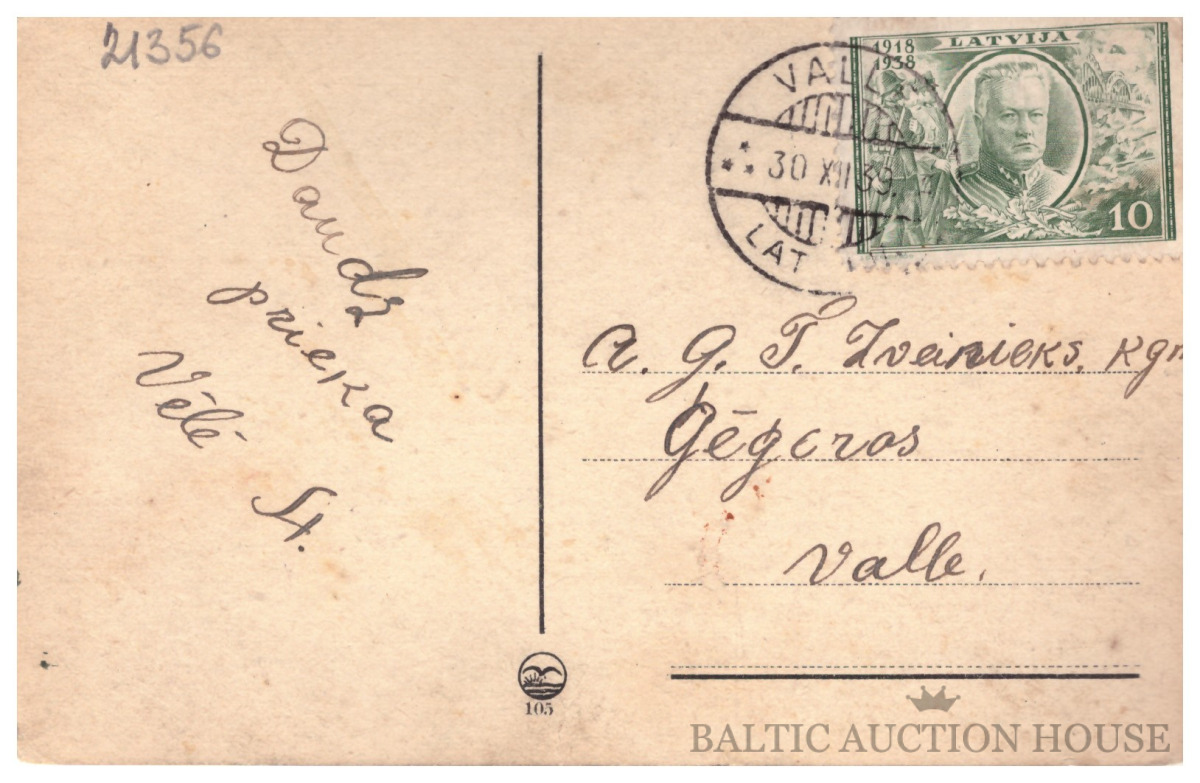 21356
Daudz
prieka
Vēlē
St.
1918
1938
LATVIJA
10
VALL
30 XII 39.
LAT
A. G. T. Zveinieks. kgm
Ģēģeros
Valle.
105
BALTIC AUCTION HOUSE